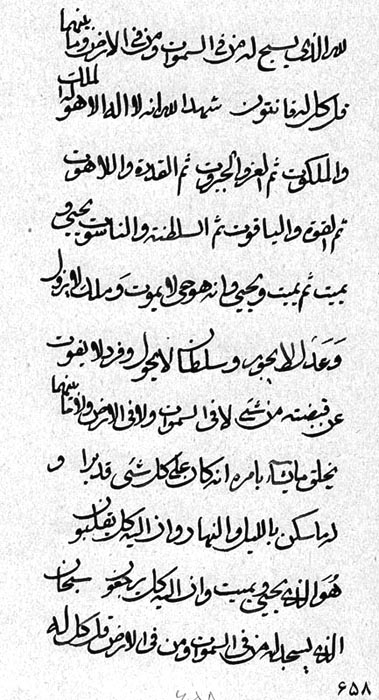 لله الذي يسبح له من في السموات ومن في الارض وما بينهما
قل كل له قانتون شهد الله انه لا اله الا هو له الملك
والملكوت ثم العز والجبروت ثم القدرة واللاهوت
ثم القوة والياقوت ثم السلطنة والناسوت يحيي و
يميت ثم يميت ويحيي وانه هو حي لا يموت وملك لا يزول
وَعَدل لا يجور وسلطان لا يحول وفرد لا يفوت
عن قبضته من شئ لا في السموات ولا في الارض ولا ما بينهما
يخلق ما يشاء بامره انه كان على كل شئ قديرا و
له ما سكن بالليل والنهار وان اليه كل يقلبون
هُوَ الذي يحيي ويميت وان اليه كل يرجعون سبحان
الذي يسجد له من في السموات ومن في الارض قل كل له
۶۵۸